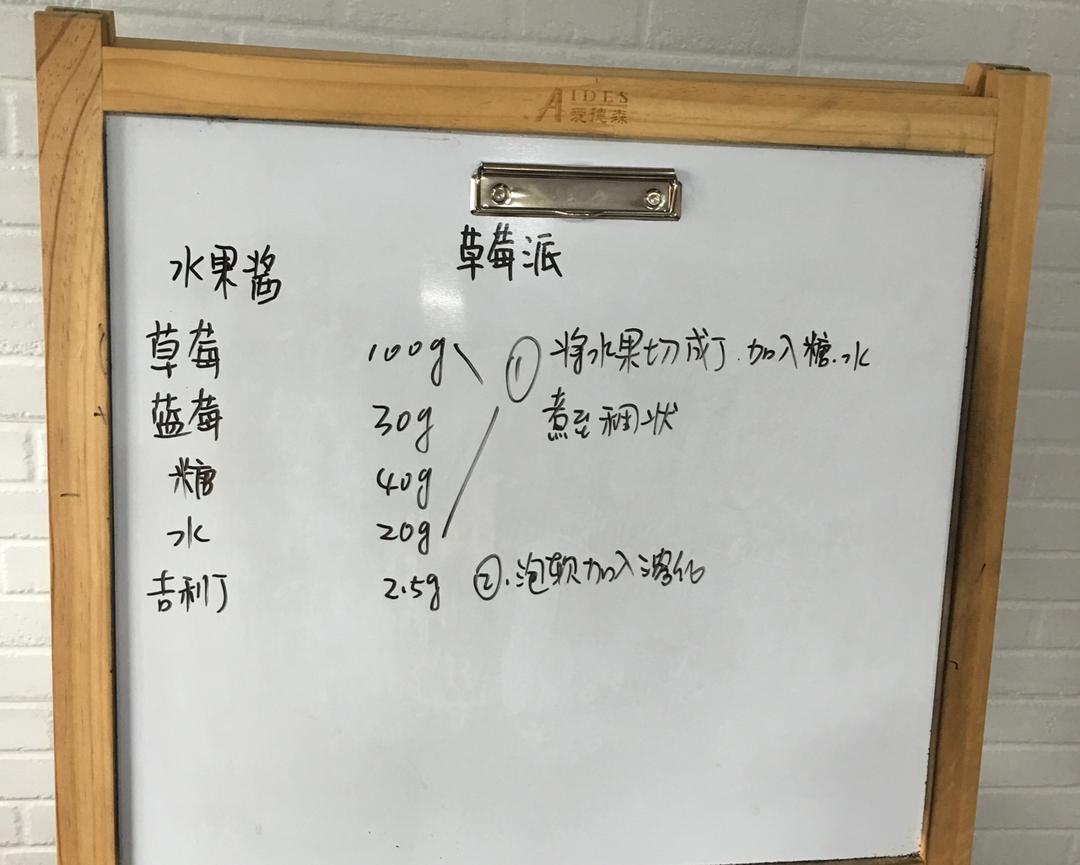 AIDES
爱德森
草莓派
水果酱
草莓 100g ① 将水果切成丁.加入糖.水
煮至稠状
蓝莓 30g
糖 40g
水 20g
吉利丁 2.5g ②.泡软加入溶化